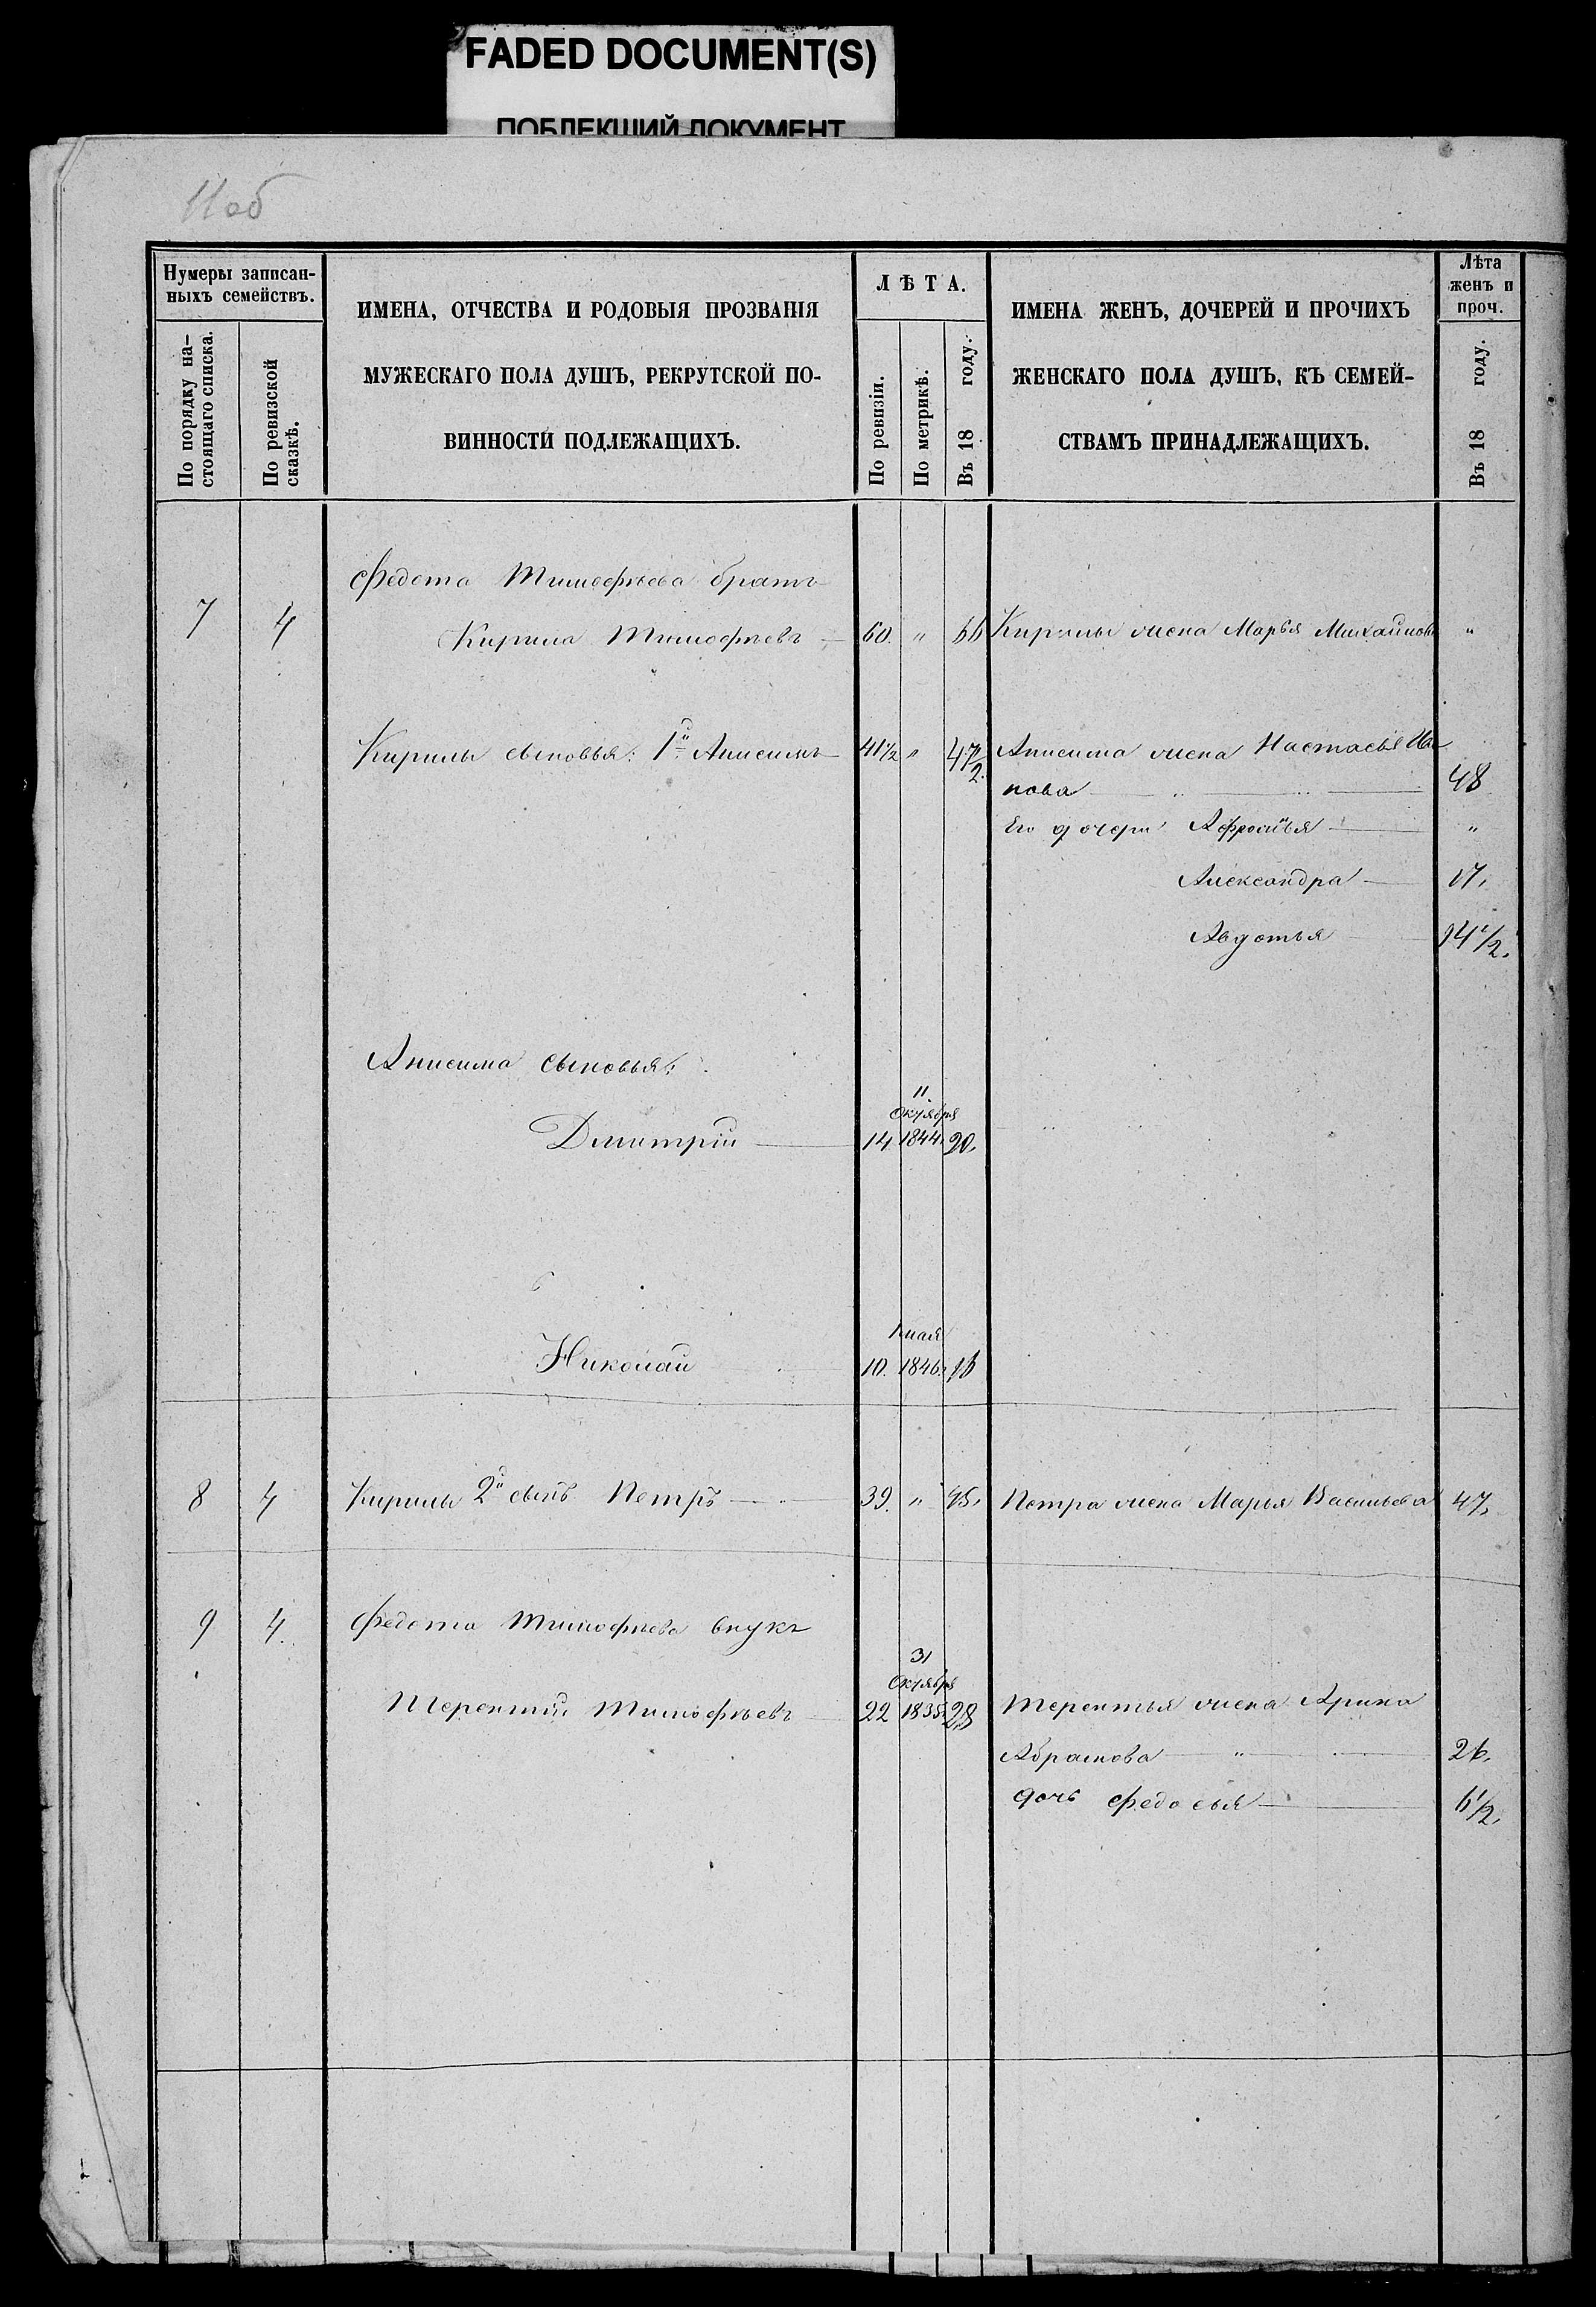 FADED DOCUMENT(S)
ПОБЛЕКШИЙ ДОКУМЕНТ
11об
Нумеры записан-
ныхъ семействъ.
По порядку на-
стоящаго списка.
По ревизской
сказкѣ.
ИМЕНА, ОТЧЕСТВА И РОДОВЫЯ ПРОЗВАНІЯ
МУЖЕСКАГО ПОЛА ДУШЪ, РЕКРУТСКОЙ ПО-
ВИННОСТИ ПОДЛЕЖАЩИХЪ.
ЛѢТА.
По ревизіи.
По метрикѣ.
Въ 18 году.
ИМЕНА ЖЕНЪ, ДОЧЕРЕЙ И ПРОЧИХЪ
ЖЕНСКАГО ПОЛА ДУШЪ, КЪ СЕМЕЙ-
СТВАМЪ ПРИНАДЛЕЖАЩИХЪ.
Лѣта
женъ и
проч.
Въ 18 году.
Федота Тимофѣева братъ
7 4 Кирила Тимофѣевъ 60. " 66 Кирилы жена Марья Михайлова "
Кирилы сыновья: 1й Анисимъ 41½ " 47½ Анисима жена Настасья Ива
нова 48
Его дочери Афросинья "
Александра 17.
Авдотья 14½.
Анисима сыновья:
11
Октября
Дмитрій 14 1844 20.
1 мая
Николай 10. 1846 18
8 4 Кирилы 2й сынъ Петръ 39. " 45. Петра жена Марья Васильева 47.
9 4. Федота Тимофѣева внукъ
31
Октября
Терентій Тимофѣевъ 22 1835 28 Терентья жена Арина
Абрамова " 26.
дочь Федосья 6½.